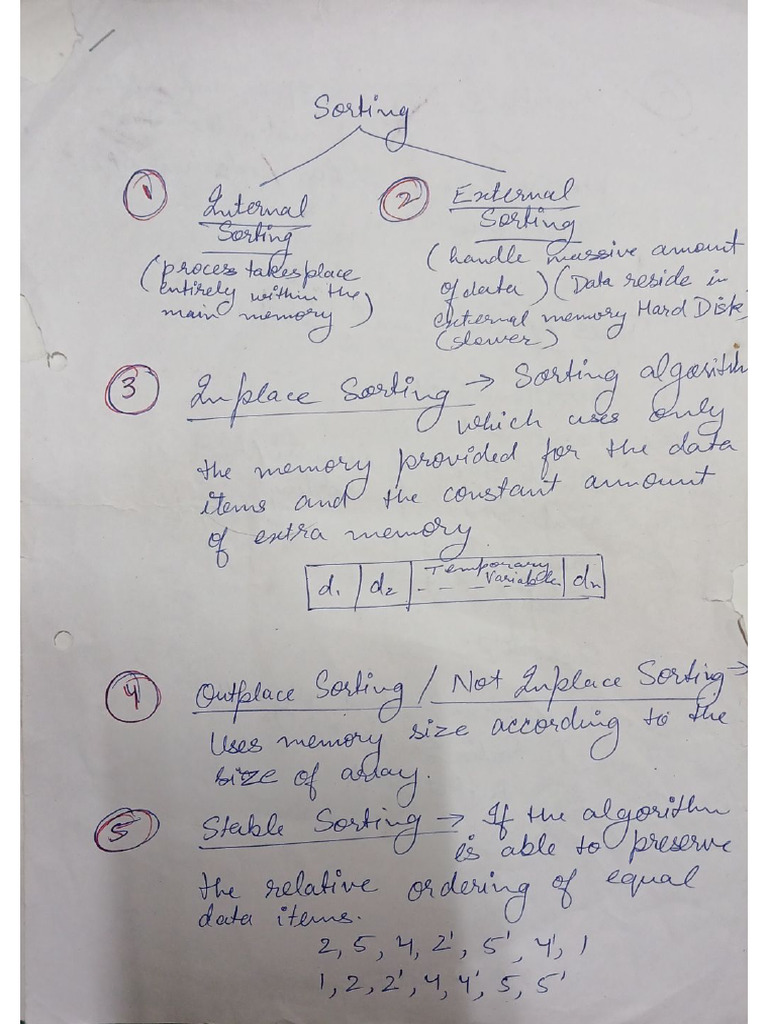 Sorting
1 Internal Sorting
(process takes place
entirely within the
main memory)
2 External Sorting
(handle massive amount
of data) (Data reside in
external memory Hard Disk
(slower)
3 Inplace Sorting → Sorting algorithm
which uses only
the memory provided for the data
items and the constant amount
of extra memory.
d1 d2 Temporary Variable - - - - dn
4 Outplace Sorting / Not Inplace Sorting →
Uses memory size according to the
size of array.
5 Stable Sorting → If the algorithm
is able to preserve
the relative ordering of equal
data items.
2, 5, 4, 2', 5', 4', 1
1, 2, 2', 4, 4', 5, 5'